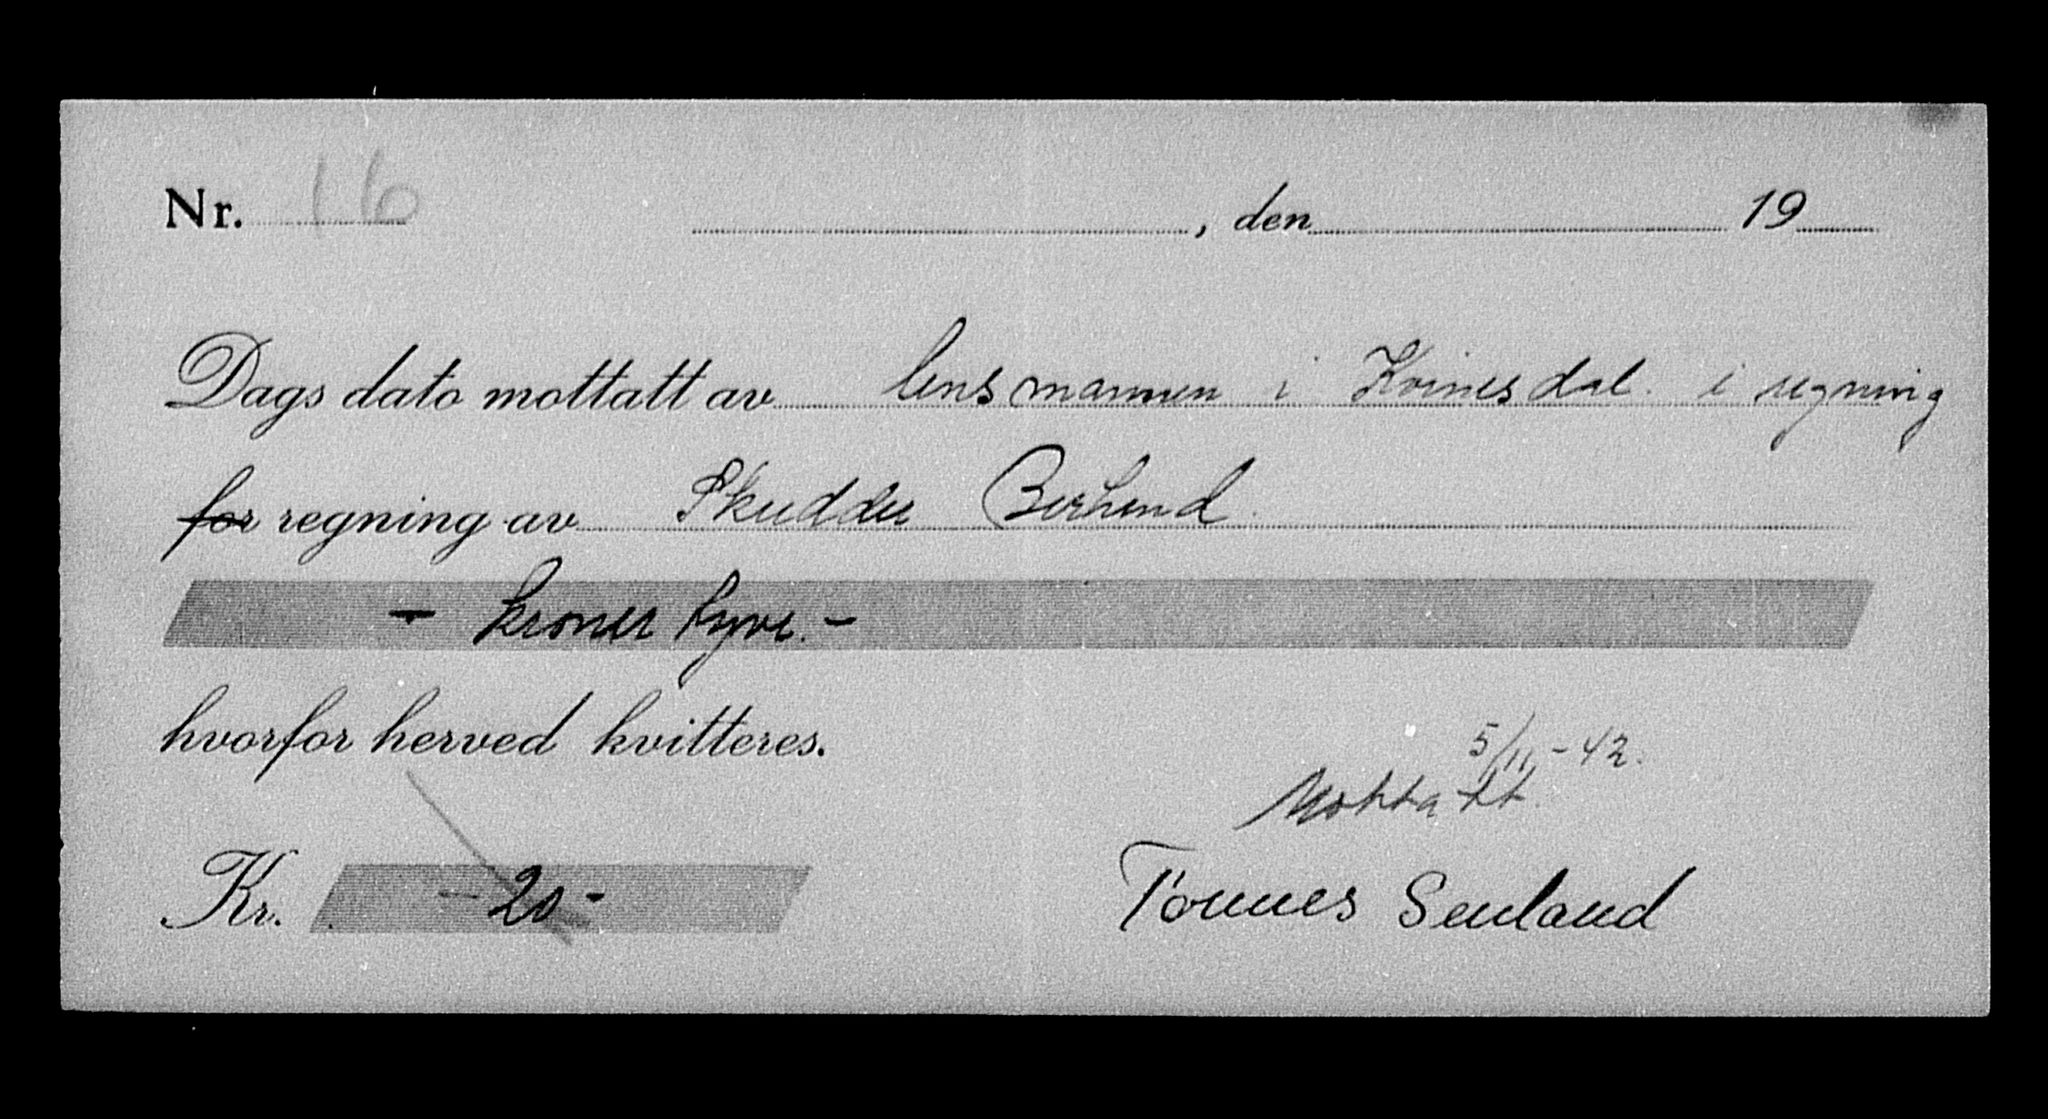 Nr. 16 , den 19
Dags dato mottatt av lensmannen i Kvinesdal. i regning
for regning av Skudder Berhend.
- kroner tyve. -
hvorfor herved kvitteres.
5/11-42.
Mottatt.
Kr. -20-
Tönnes Senland